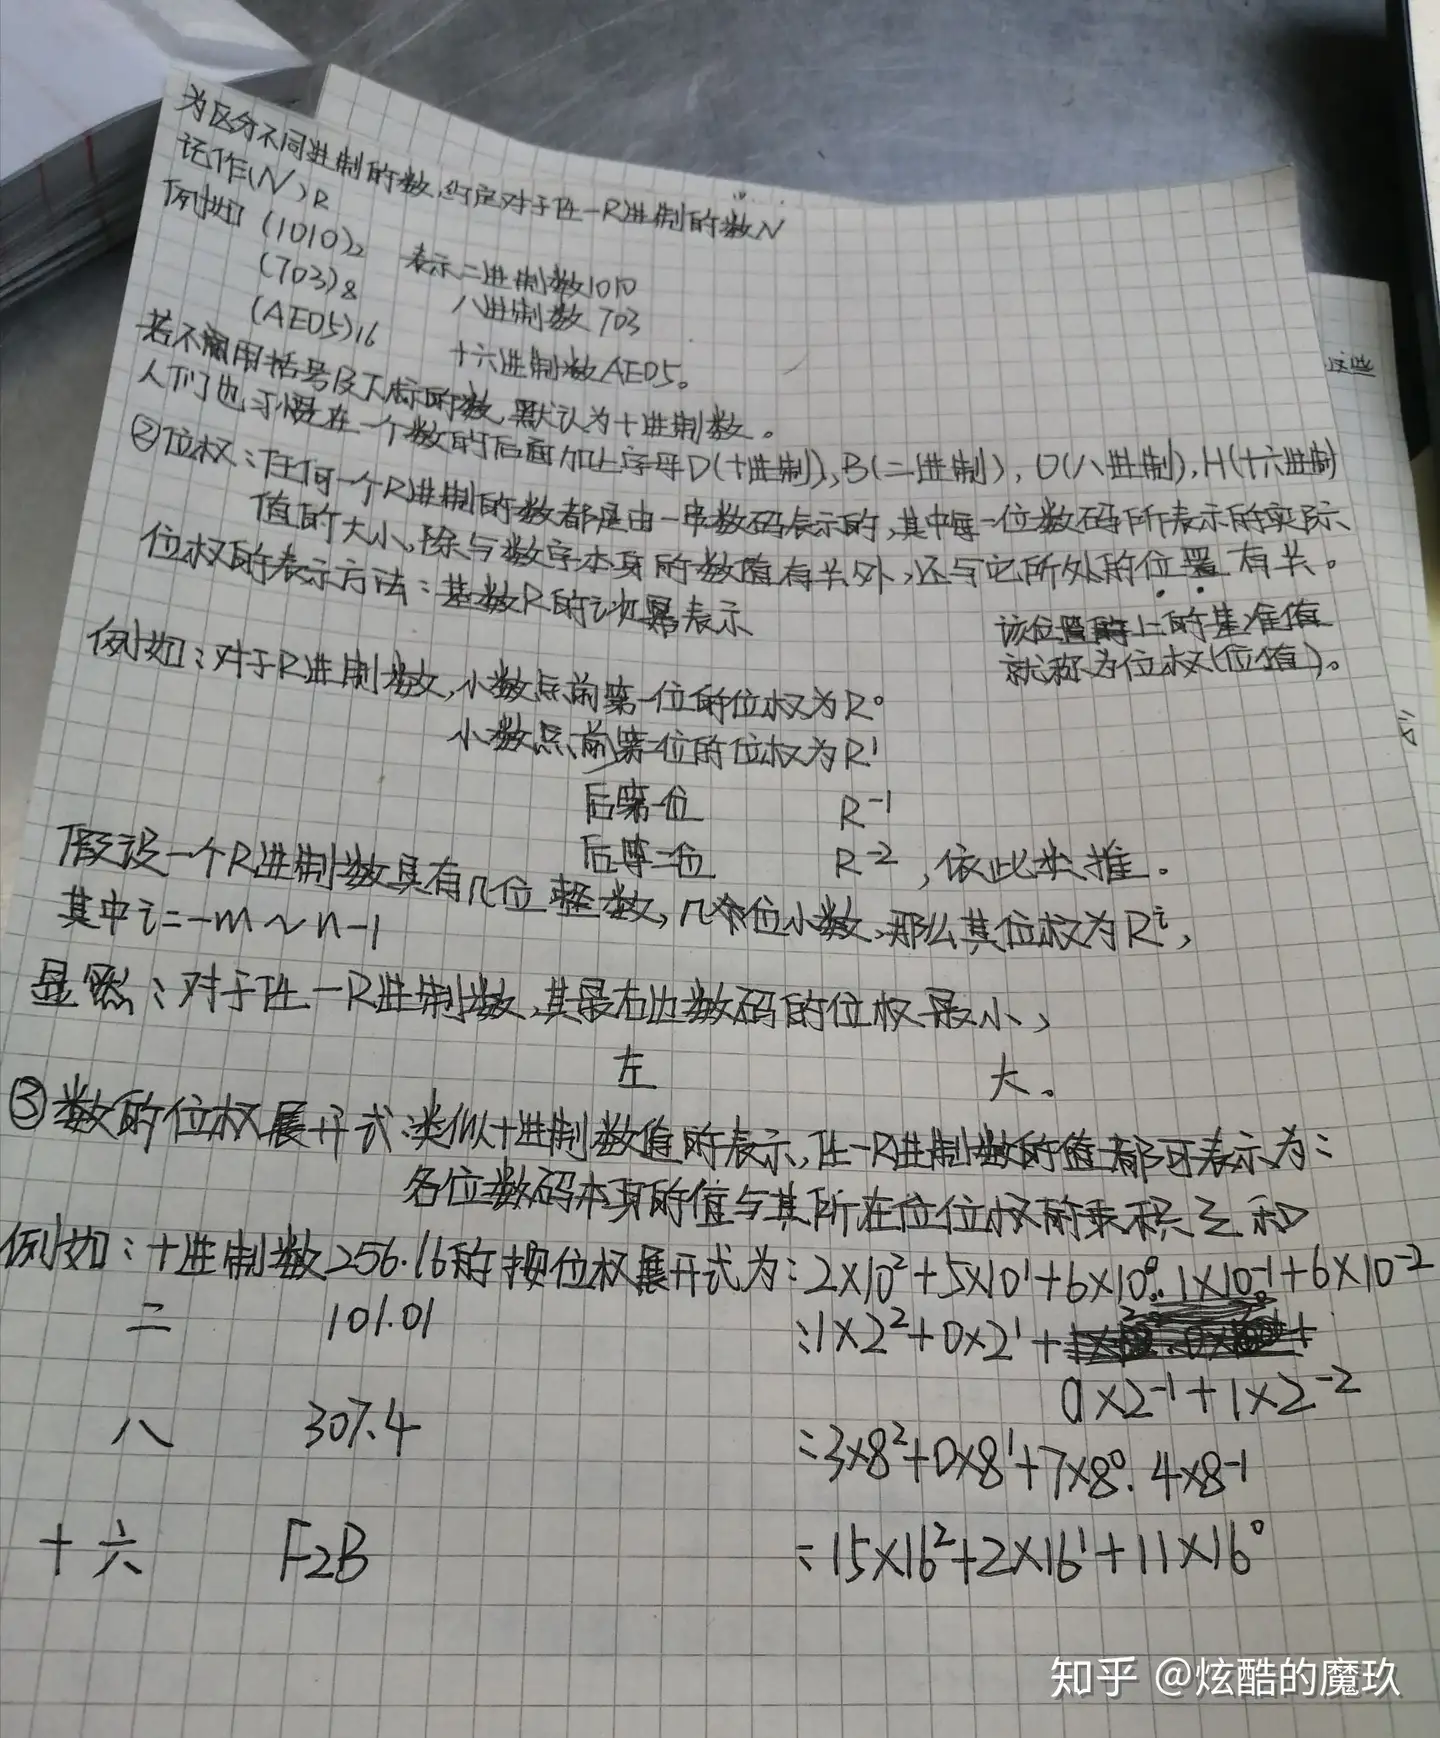 为区分不同进制的数,约定对于任一R进制的数N
记作(N)R
例如 (1010)₂ 表示二进制数1010
(703)₈ 八进制数 703
(AED5)16 十六进制数AED5。
若不用括号及下标的数,默认为十进制数。
人们也习惯在一个数的后面加上字母D(十进制),B(二进制),O(八进制),H(十六进制
②位权:任何一个R进制的数都是由一串数码表示的,其中每一位数码所表示的实际
值的大小,除与数字本身的数值有关外,还与它所处的位置有关。
位权的表示方法:基数R的i次幂表示
该位置上的基准值
就称为位权(位值)。
例如:对于R进制数,小数点前第一位的位权为R⁰
小数点前第二位的位权为R¹
后第一位 R⁻¹
后第二位 R⁻²,依此类推。
假设一个R进制数具有几位整数,几位小数,那么其位权为Rⁱ,
其中i=-m~n-1
显然:对于任一R进制数,其最右边数码的位权最小,
左 大。
③数的位权展开式:类似十进制数值的表示,任一R进制数的值都可表示为:
各位数码本身的值与其所在位位权的乘积之和
例如:十进制数256.16的按位权展开式为:2×10²+5×10¹+6×10⁰.1×10⁻¹+6×10⁻²
二 101.01 :1×2²+0×2¹+
0×2⁻¹+1×2⁻²
八 307.4 :3×8²+0×8¹+7×8⁰.4×8⁻¹
十六 F2B :15×16²+2×16¹+11×16⁰
这些
知乎 @炫酷的魔玖